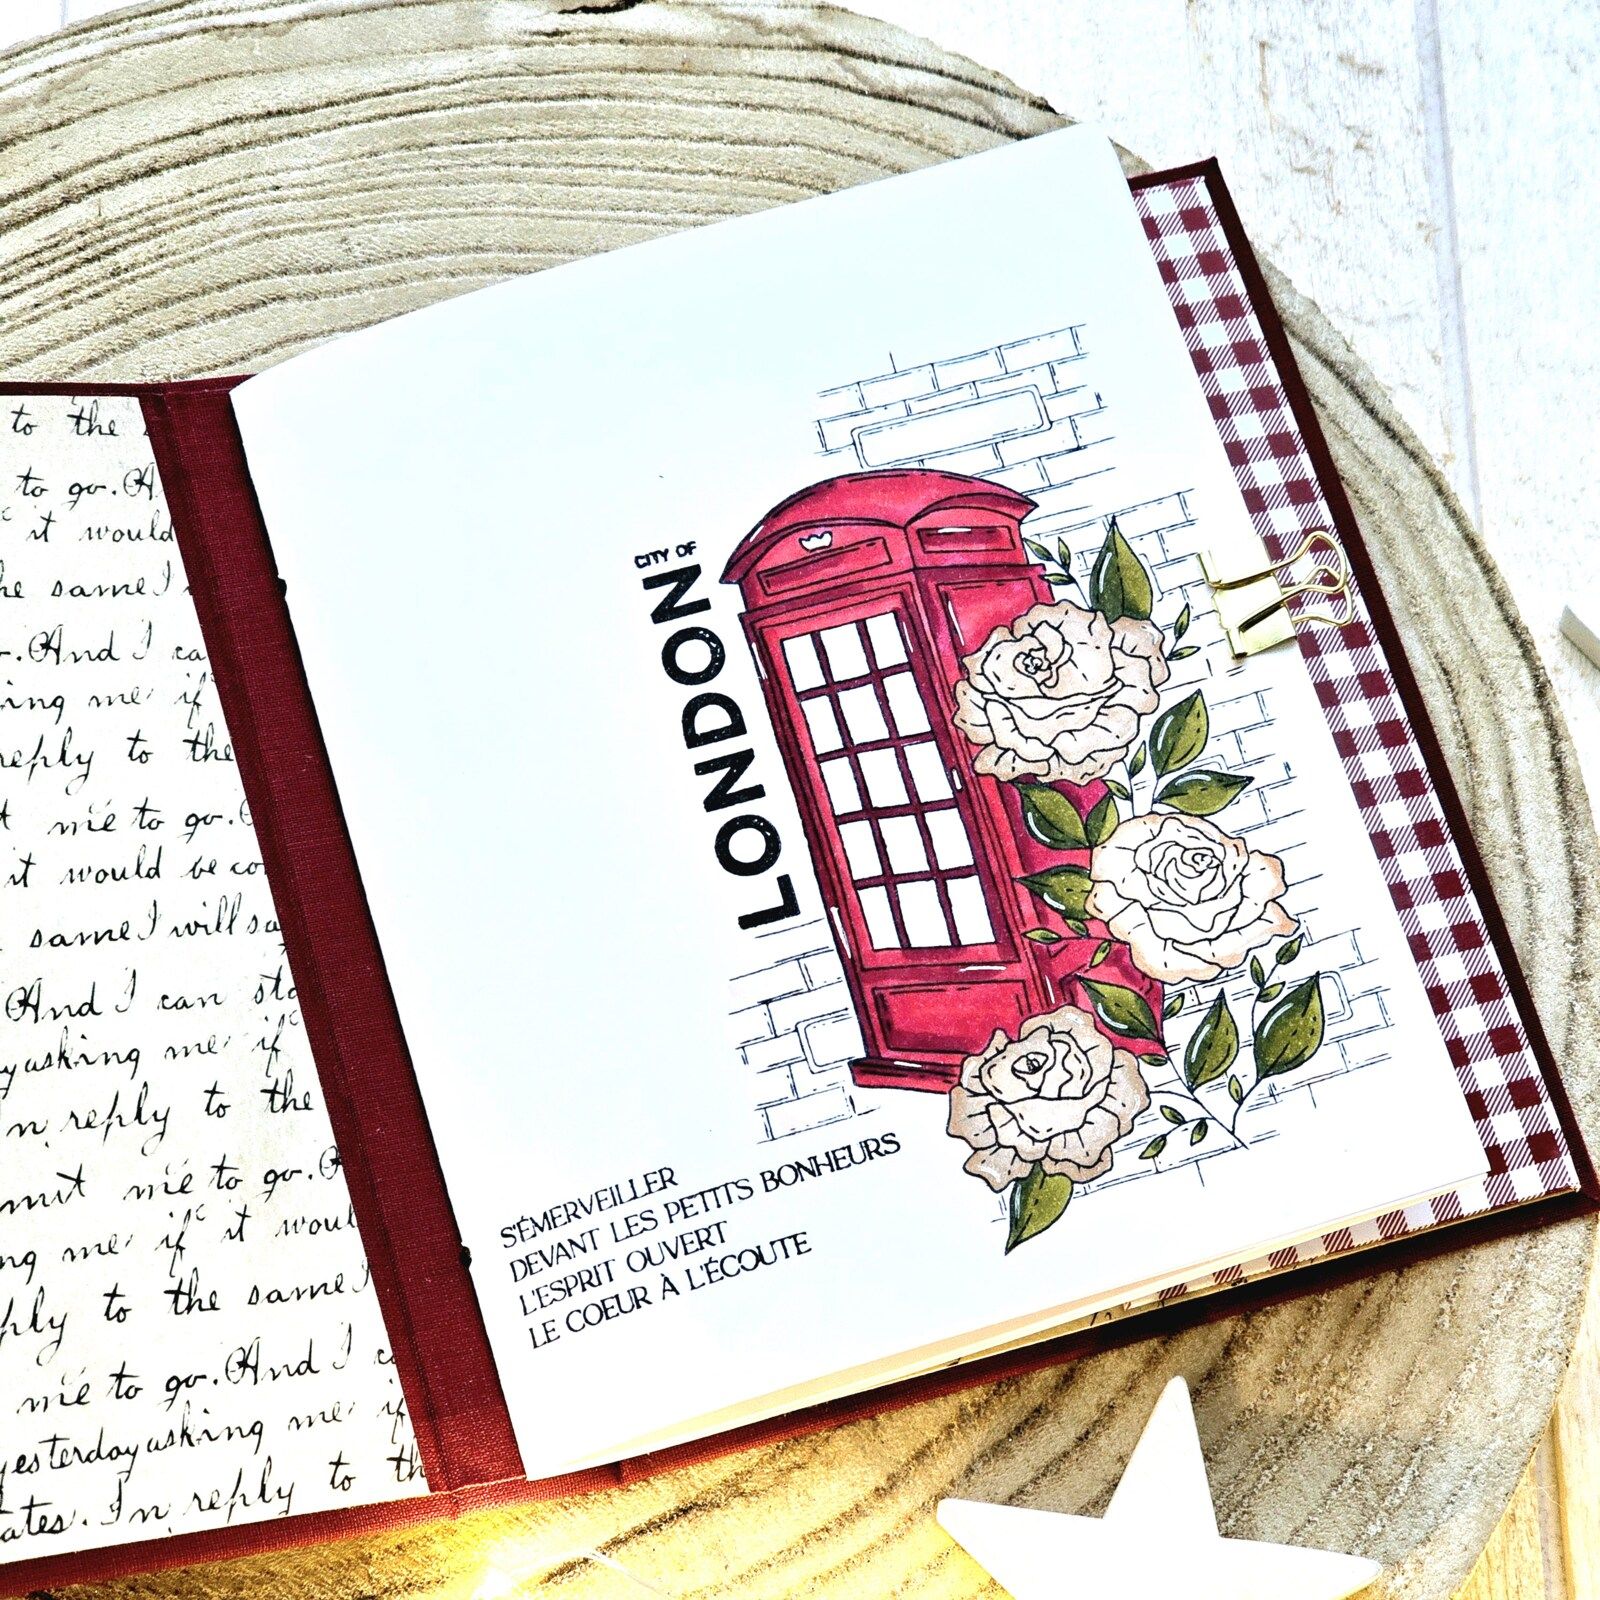 to the
to go. And
it would
the same I
. And I ca
asking me if
reply to the
me to go.
it would be co
same I will sa
And I can sta
y asking me if
In reply to the
mit me to go. A
ng me if it woul
ply to the same I
me to go. And I c
yesterday asking me if
ates. In reply to th
CITY OF
LONDON
S'ÉMERVEILLER
DEVANT LES PETITS BONHEURS
L'ESPRIT OUVERT
LE COEUR À L'ÉCOUTE